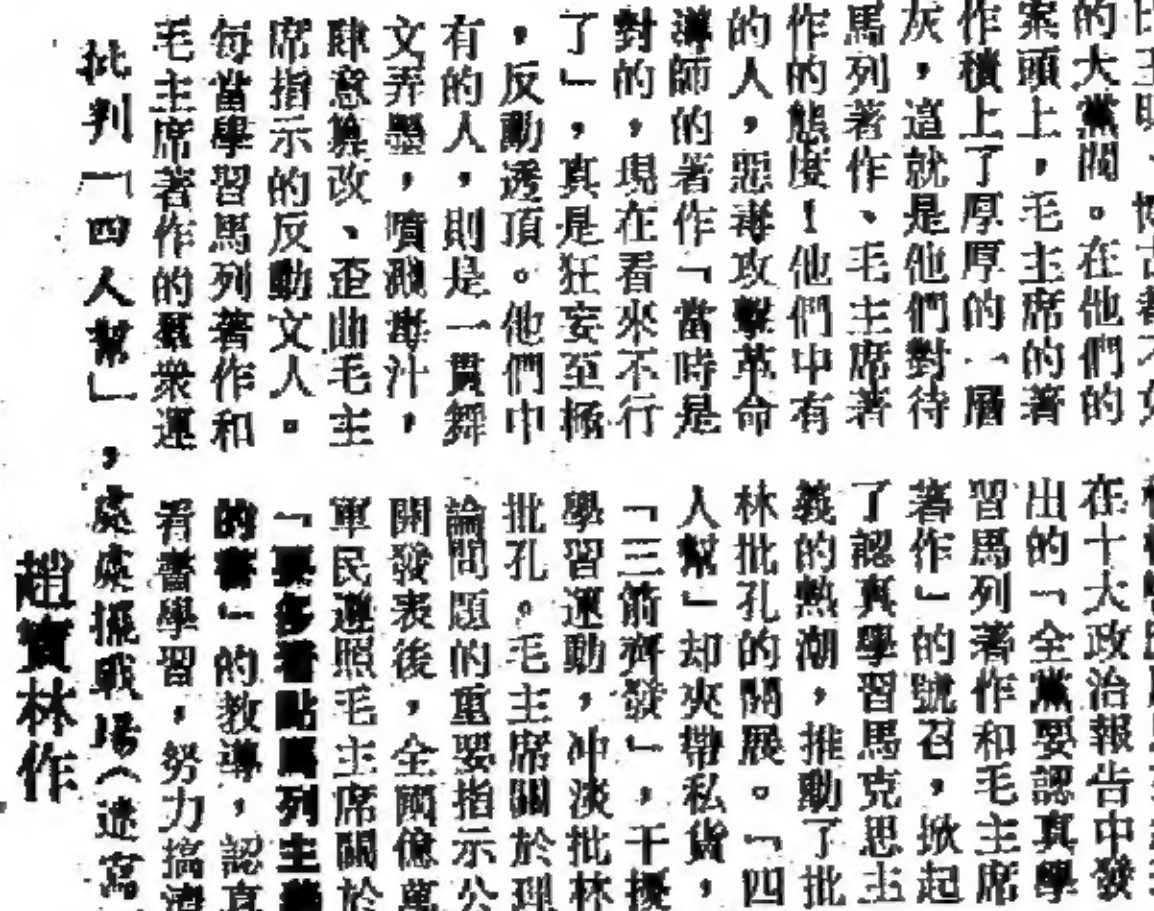 的大黨閥。在他們的
案頭上,毛主席的著
作積上了厚厚的一層
灰,這就是他們對待
馬列著作、毛主席著
作的態度!他們中有
的人,惡毒攻擊革命
導師的著作「當時是
對的,現在看來不行
了」,真是狂妄至極
,反動透頂。他們中
有的人,則是一貫舞
文弄墨,噴濺毒汁,
肆意篡改、歪曲毛主
席指示的反動文人。
每當學習馬列著作和
毛主席著作的羣衆運
在十大政治報告中發
出的「全黨要認真學
習馬列著作和毛主席
著作」的號召,掀起
了認真學習馬克思主
義的熱潮,推動了批
林批孔的開展。「四
人幫」却夾帶私貨,
「三箭齊發」,干擾
學習運動,冲淡批林
批孔。毛主席關於理
論問題的重要指示公
開發表後,全國億萬
軍民遵照毛主席關於
「要多看點馬列主義
的書」的教導,認真
看書學習,努力搞清
批判「四人幫」,處處擺戰場(速寫
趙寶林作